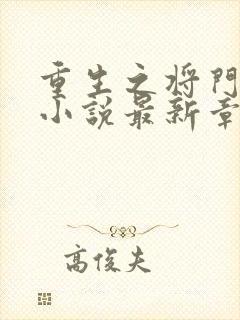 重生之将門
小説最新章
高俊夫